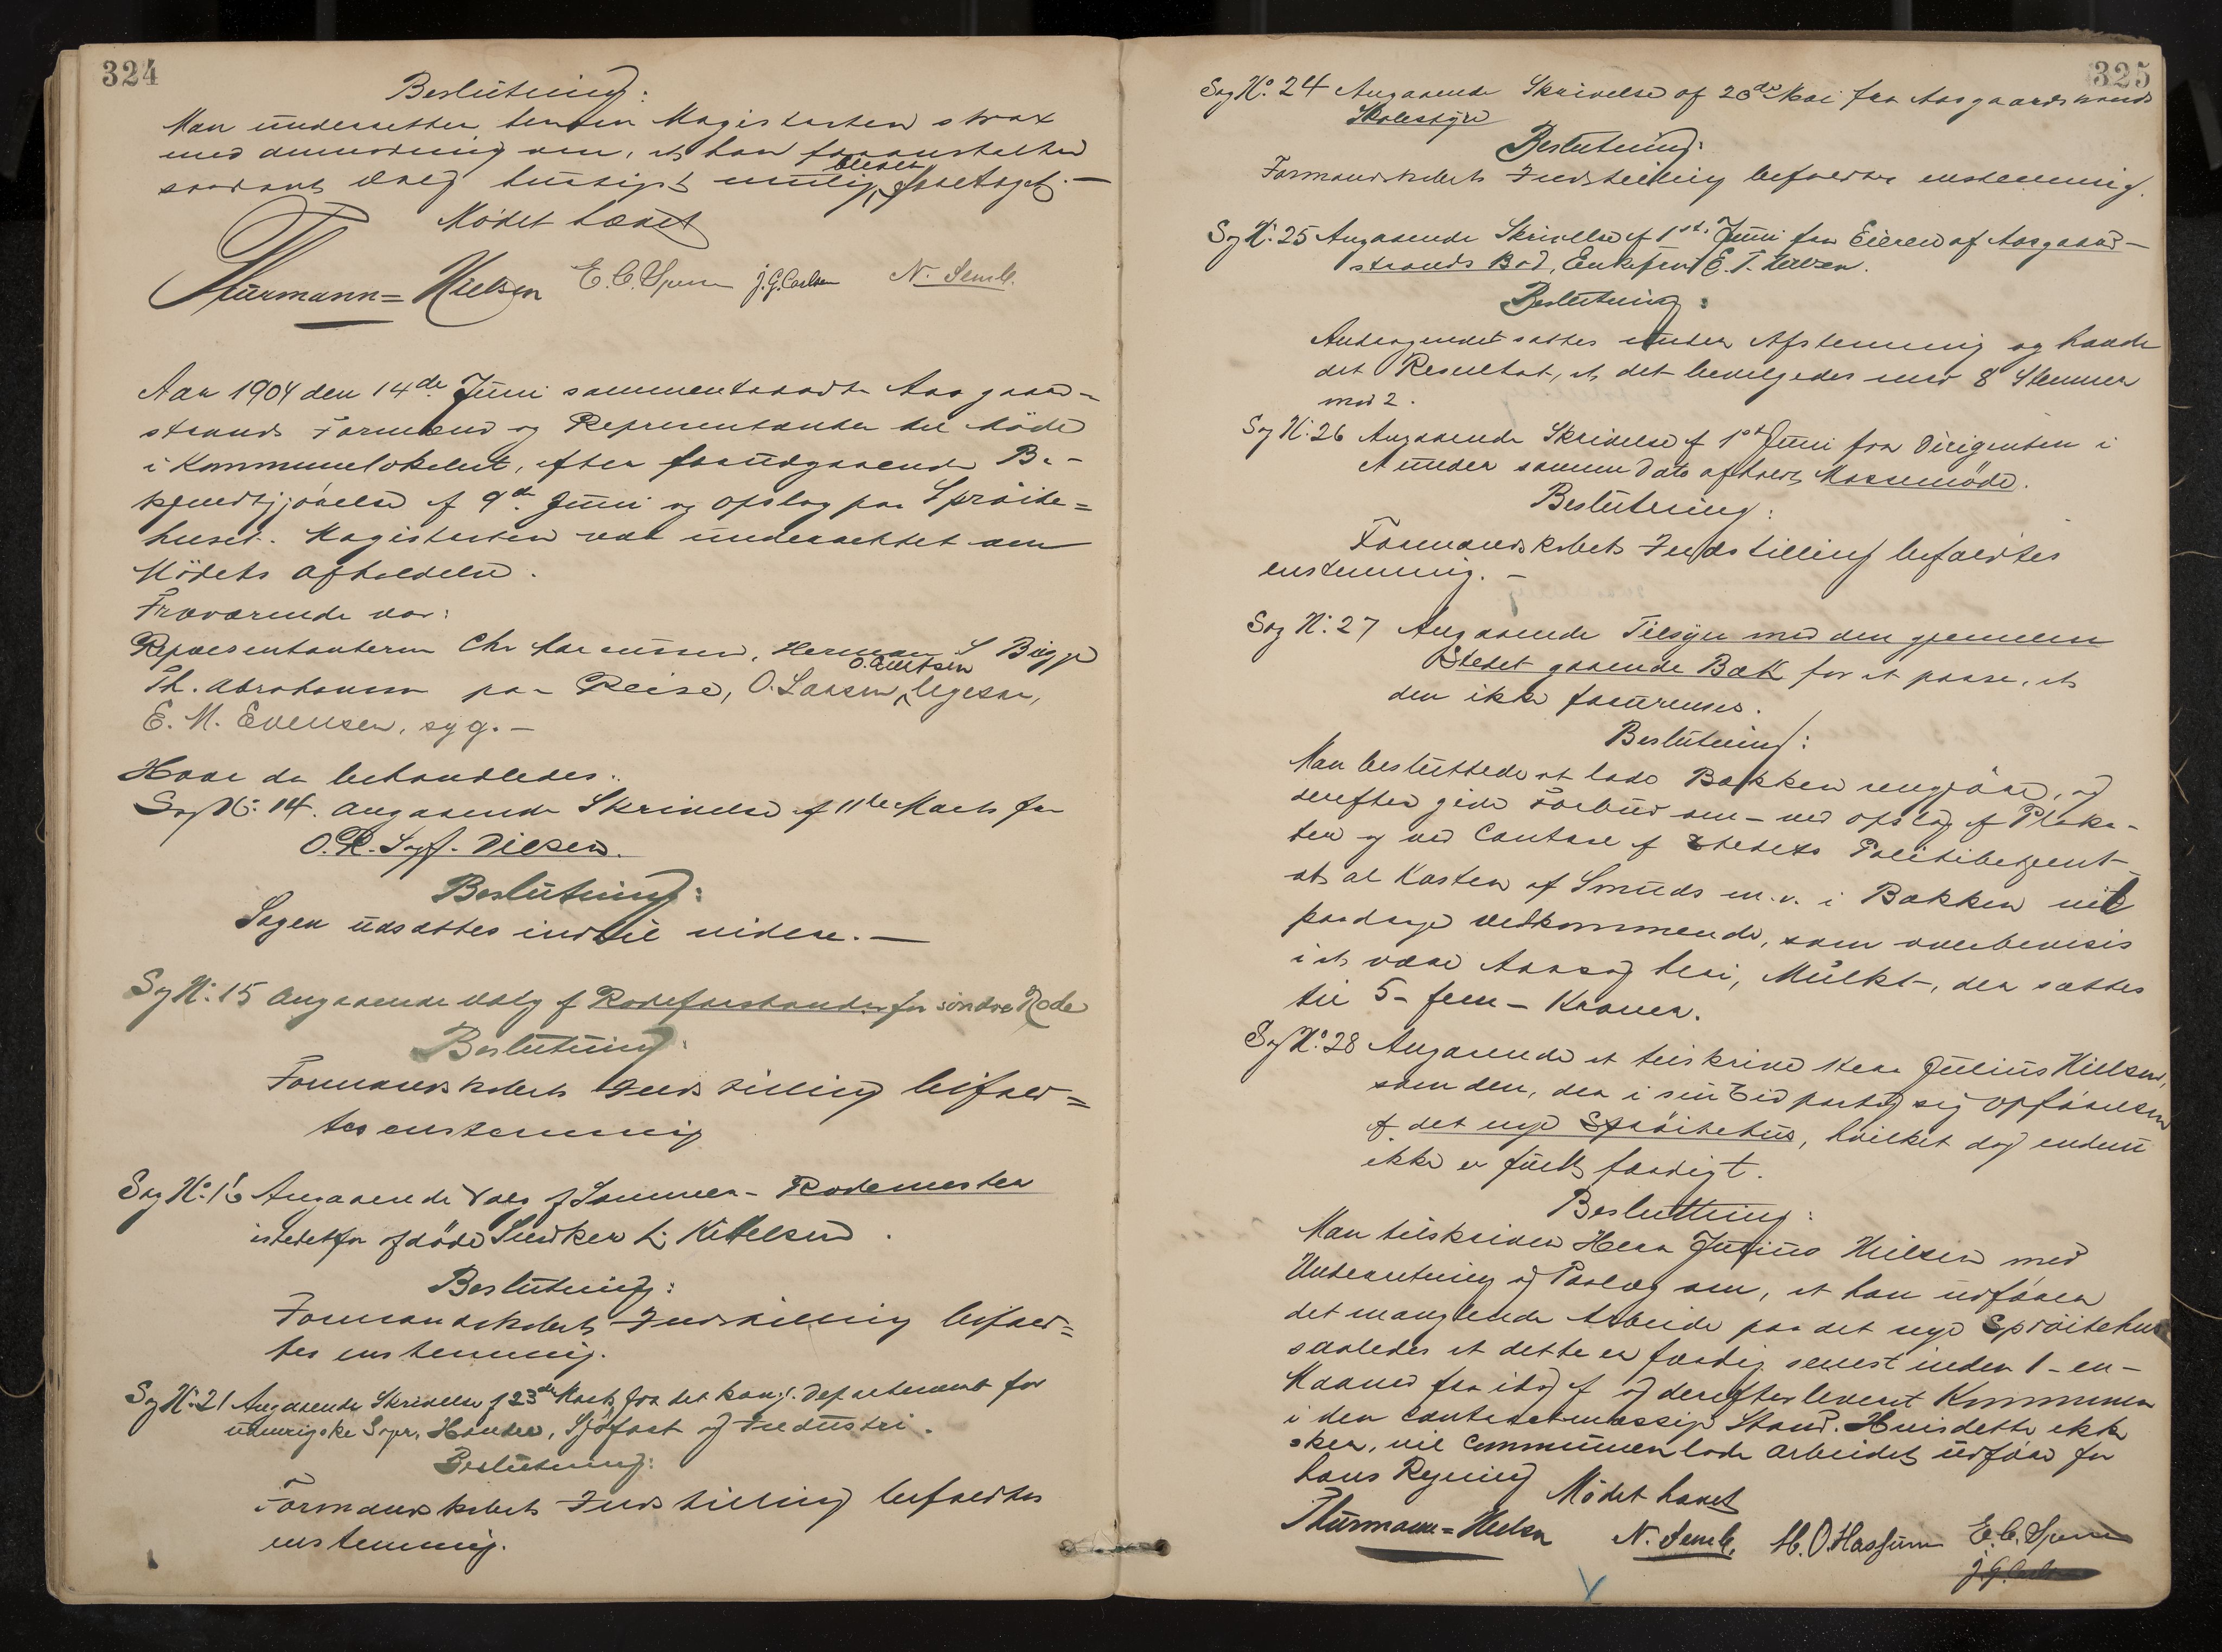 324
Beslutning:
Man underretter herom Magistraten strax
med anmodning om, at han foranstalter
saadant Valg hurtigst mulig, bliver foretaget. —
Mødet hævet
Thurmann=Nielsen E. C. Spurn J. G. Carlsen N. Semb.
Aar 1904 den 14de Juni sammentraadte Aasgaard-
strands Formænd og Representanter til Möde
i Kommunelokalet, efter forudgaaende Be-
kjendtgjörelse af 9de Juni og Opslag paa Spröite=
huset. Magistraten var underrettet om
Mödets Afholdelse.
Fraværende var:
Representanterne Chr. , Herman S. Bügge
O. Aurtsen
Th. Abrahamsen paa Reise, O. Larsen, ligesaa,
E. M. Evensen, syg. —
Hvor da behandledes:
Sag No. 14. Angaaende Skrivelse af 11te Marts fra
O.R. Sagf. Dilsen.
Beslutning:
Sagen udsættes indtil videre. —
Sag No. 15 Angaaende Valg af Rodeforstander for söndre Rode
Beslutning:
Formandskabets Indstilling bifald=
tes enstemmig
Sag No. 16 Angaaende Valg af Sommer-Rodemester
istedetfor afdöde Snedker L. Kittelsen.
Beslutning:
Formandskabets Indstilling bifald=
tes enstemmig.
Sag No. 21 Angaaende Skrivelse af 23de Marts fra det kongl. Departement for
udenrigske Sager, Handel, Sjöfart og Industri.
Beslutning:
Formandskabets Indstilling bifaldtes
enstemmig.
325
Sag No. 24 Angaaende Skrivelse af 20de Mai fra Aasgaardstrands
Skolestyre
Beslutning:
Formandskabets Indstilling bifaldtes enstemmig.
Sag No. 25 Angaaende Skrivelse af 1ste Juni fra Eieren af Aasgaard-
strands Bad, Enkefru E. T.
Beslutning:
Andragendet sattes under Afstemning og havde
det Resultat, at det bevilgedes med 8 Stemmer
mod 2.
Sag No. 26 Angaaende Skrivelse af 1ste Juni fra Dirigenten i
et under samme Dato afholdt Massemöde.
Beslutning:
Formandskabets Indstilling bifaldtes
enstemmig. —
Sag No. 27 Angaaende Tilsyn med den gjennem
Stedet gaaende Bæk for at paase, at
den ikke forurenses.
Beslutning:
Man besluttede at lade Bækken rengjöre, og
derefter give Forbud om — ved Opslag af Plaka-
ter og ved Contrae af Stedets Politibetjent —
at al Kasten af Smuds m.v. i Bækken vil
paadrage Vedkommende, som overbevises
i at være Aarsag heri, Mulkt —, der sættes
til 5 — fem — Kroner.
Sag No. 28 Angaaende at tilskrive Herr Julius Nielsen,
som den, der i sin Tid paatog sig Opförelsen
af det nye Spröitehus, hvilket dog endnu
ikke er fuldt færdigt.
Beslutning:
Man tilskriver Herr Julius Nielsen med
Underretning og Paalæg om, at han udförer
det manglende Arbeide paa det nye Spröitehus
saaledes at dette er færdig senest inden 1 — en —
Maaned fra idag af og derefter leveret Kommunen
i den contractmæssige Stand. Hvis dette ikke
sker, vil Communen lade Arbeidet udföre for
hans Regning
Mødet hævet
Thurmann=Nielsen N. Semb. H. O. Hassum E. C. Spurn
J. G. Carlsen